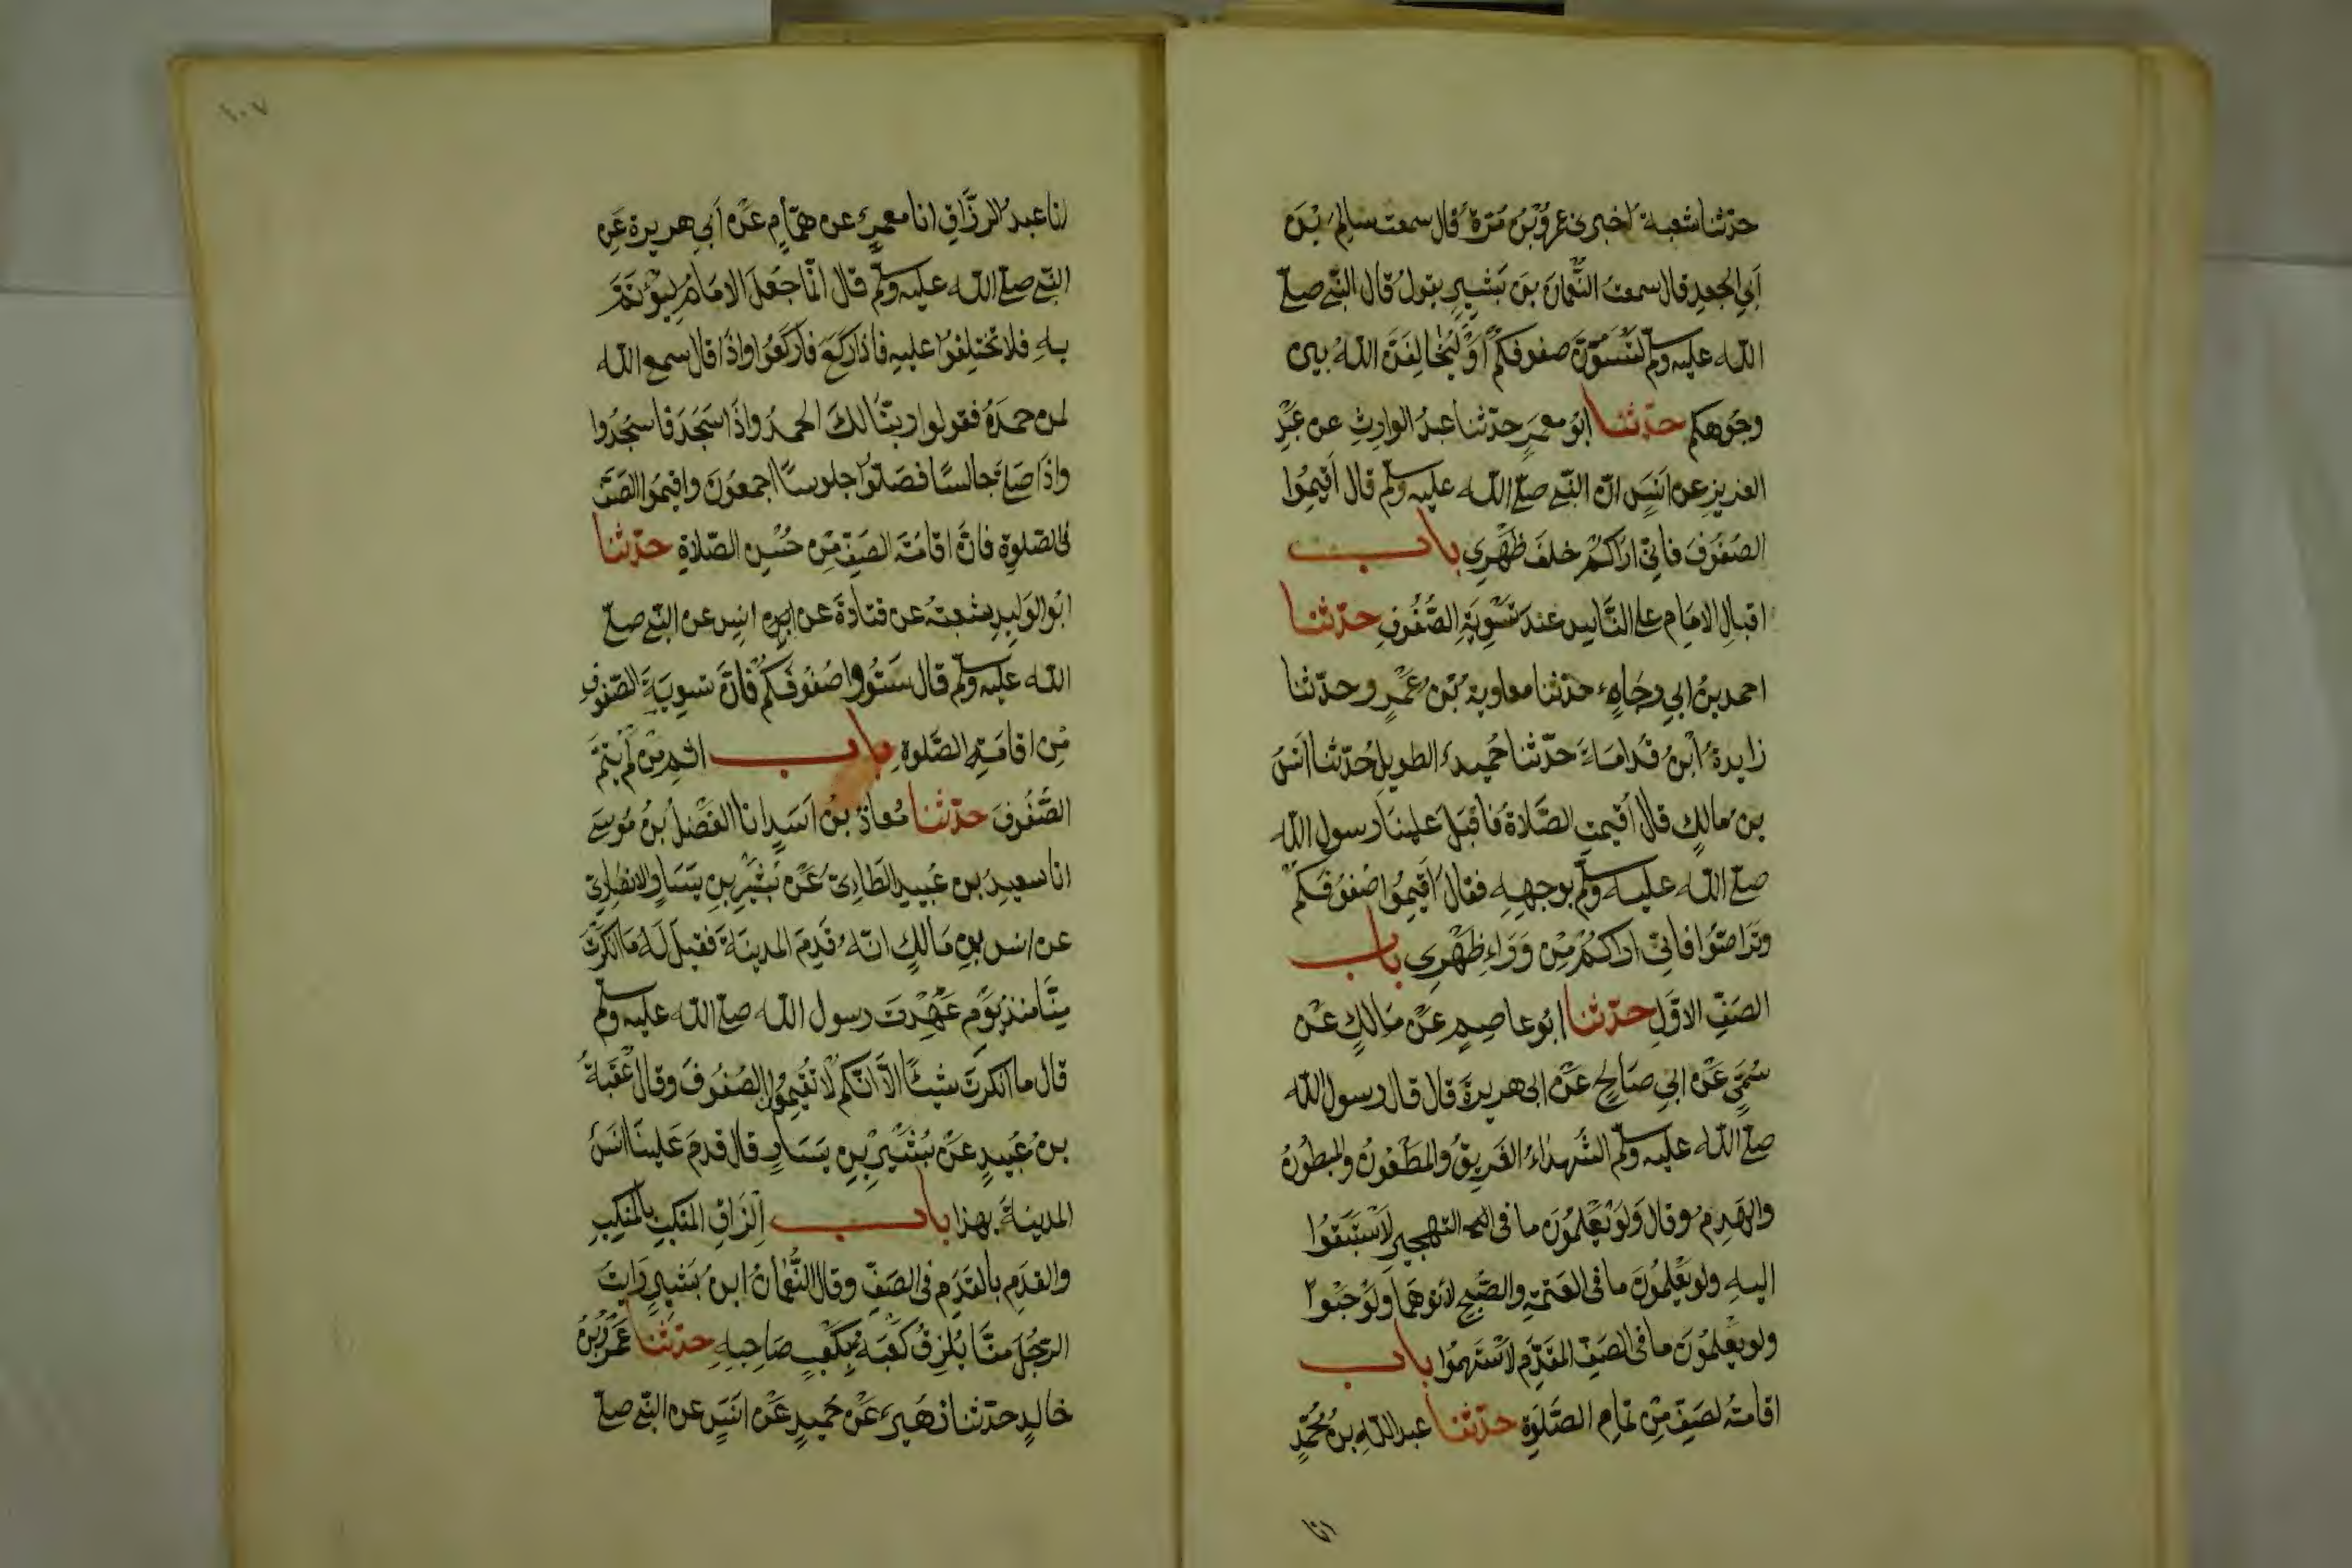 حدّثنا شعبة اخبرنى عمرو بن مرّة قال سمعت سالم بن
أبي الجعد قال سمعت النّعمان بن بشير يقول قال النّبي صلّى
الله عليه وسلّم لتسوّنّ صفوفكم أو ليخالفنّ الله بين
وجوهكم حدّثنا ابو معمر حدّثنا عبد الوارث عن عبد
العزيز عن انس انّ النّبي صلّى الله عليه وسلّم قال أقيموا
الصفوف فانّي اراكم خلف ظهري باب
اقبال الامام على النّاس عند تسوية الصّفوف حدّثنا
احمد بن ابي رجاء حدّثنا معاوية بن عمرو حدّثنا
زايدة ابن قدامة حدّثنا حميد الطويل حدّثنا انس
بن مالك قال أقيمت الصّلاة فأقبل علينا رسول الله
صلّى الله عليه وسلّم بوجهه فقال أقيموا صفوفكم
وتراصّوا فانّي اراكم من وراء ظهري باب
الصفّ الاوّل حدّثنا ابو عاصم عن مالك عن
سميّ عن ابي صالح عن ابى هريرة قال قال رسول الله
صلّى الله عليه وسلّم الشّهداء الغريق والمطعون والمبطون
والهدم وقال ولو يعلمون ما فى التهجير لاستبقوا
اليه ولو يعلمون ما فى العتمة والصّبح لأتوهما ولو حبوا
ولو يعلمون ما فى الصفّ المقدّم لاستهموا باب
اقامة الصفّ من تمام الصّلوة حدّثنا عبد الله بن محمّد
انا
١٠٧
انا عبد الرزّاق انا معمر عن همّام عن أبي هريرة عن
النّبي صلّى الله عليه وسلّم قال انّما جعل الامام ليؤتمّ
به فلا تختلفوا عليه فاذا ركع فاركعوا واذا قال سمع الله
لمن حمده فقولوا ربّنا لك الحمد واذا سجد فاسجدوا
واذا صلّى جالسًا فصلّوا جلوسًا اجمعون واقيموا الصفّ
فى الصّلوة فانّ اقامة الصفّ من حسن الصّلاة حدّثنا
ابو الوليد شعبة عن قتادة عن انس عن النّبي صلّى
الله عليه وسلّم قال سوّوا صفوفكم فانّ تسوية الصّفوف
من اقامة الصّلوة باب اثم من لم يتمّ
الصّفوف حدّثنا معاذ بن اسد انا الفضل بن موسى
انا سعيد بن عبيد الطّائيّ عن بشير بن يسار الانصاريّ
عن انس بن مالك انّه قدم المدينة فقيل له ما انكرت
منّا منذ يوم عهدت رسول الله صلّى الله عليه وسلّم
قال ما انكرت شيئًا الّا انّكم لا تقيمون الصفوف وقال عقبة
بن عبيد عن بشير بن يسار قال قدم علينا انس
المدينة بهذا باب الزاق المنكب بالمنكب
والقدم بالقدم فى الصفّ وقال النّعمان ابن بشير رايت
الرّجل منّا يلزق كعبه بكعب صاحبه حدّثنا عمرو بن
خالد حدّثنا زهير عن حميد عن انس عن النّبي صلّى